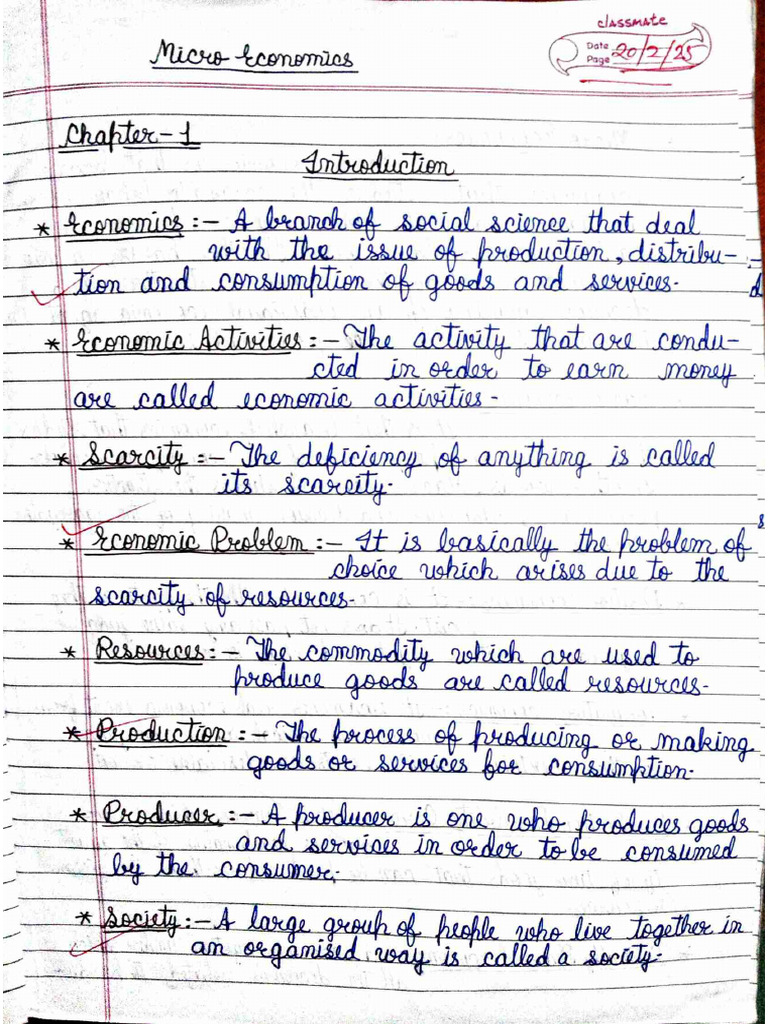 classmate
Micro Economics
Date 20/2/25
Page
Chapter-1
Introduction
* Economics :- A branch of social science that deal
with the issue of production, distribu-
tion and consumption of goods and services.
* Economic Activities :- The activity that are condu-
cted in order to earn money
are called economic activities -
* Scarcity :- The deficiency of anything is called
its scarcity.
* Economic Problem :- It is basically the problem of
choice which arises due to the
scarcity of resources.
* Resources :- The commodity which are used to
produce goods are called resources.
* Production :- The process of producing or making
goods or services for consumption.
* Producer :- A producer is one who produces goods
and services in order to be consumed
by the consumer.
* Society :- A large group of people who live together in
an organised way is called a society.